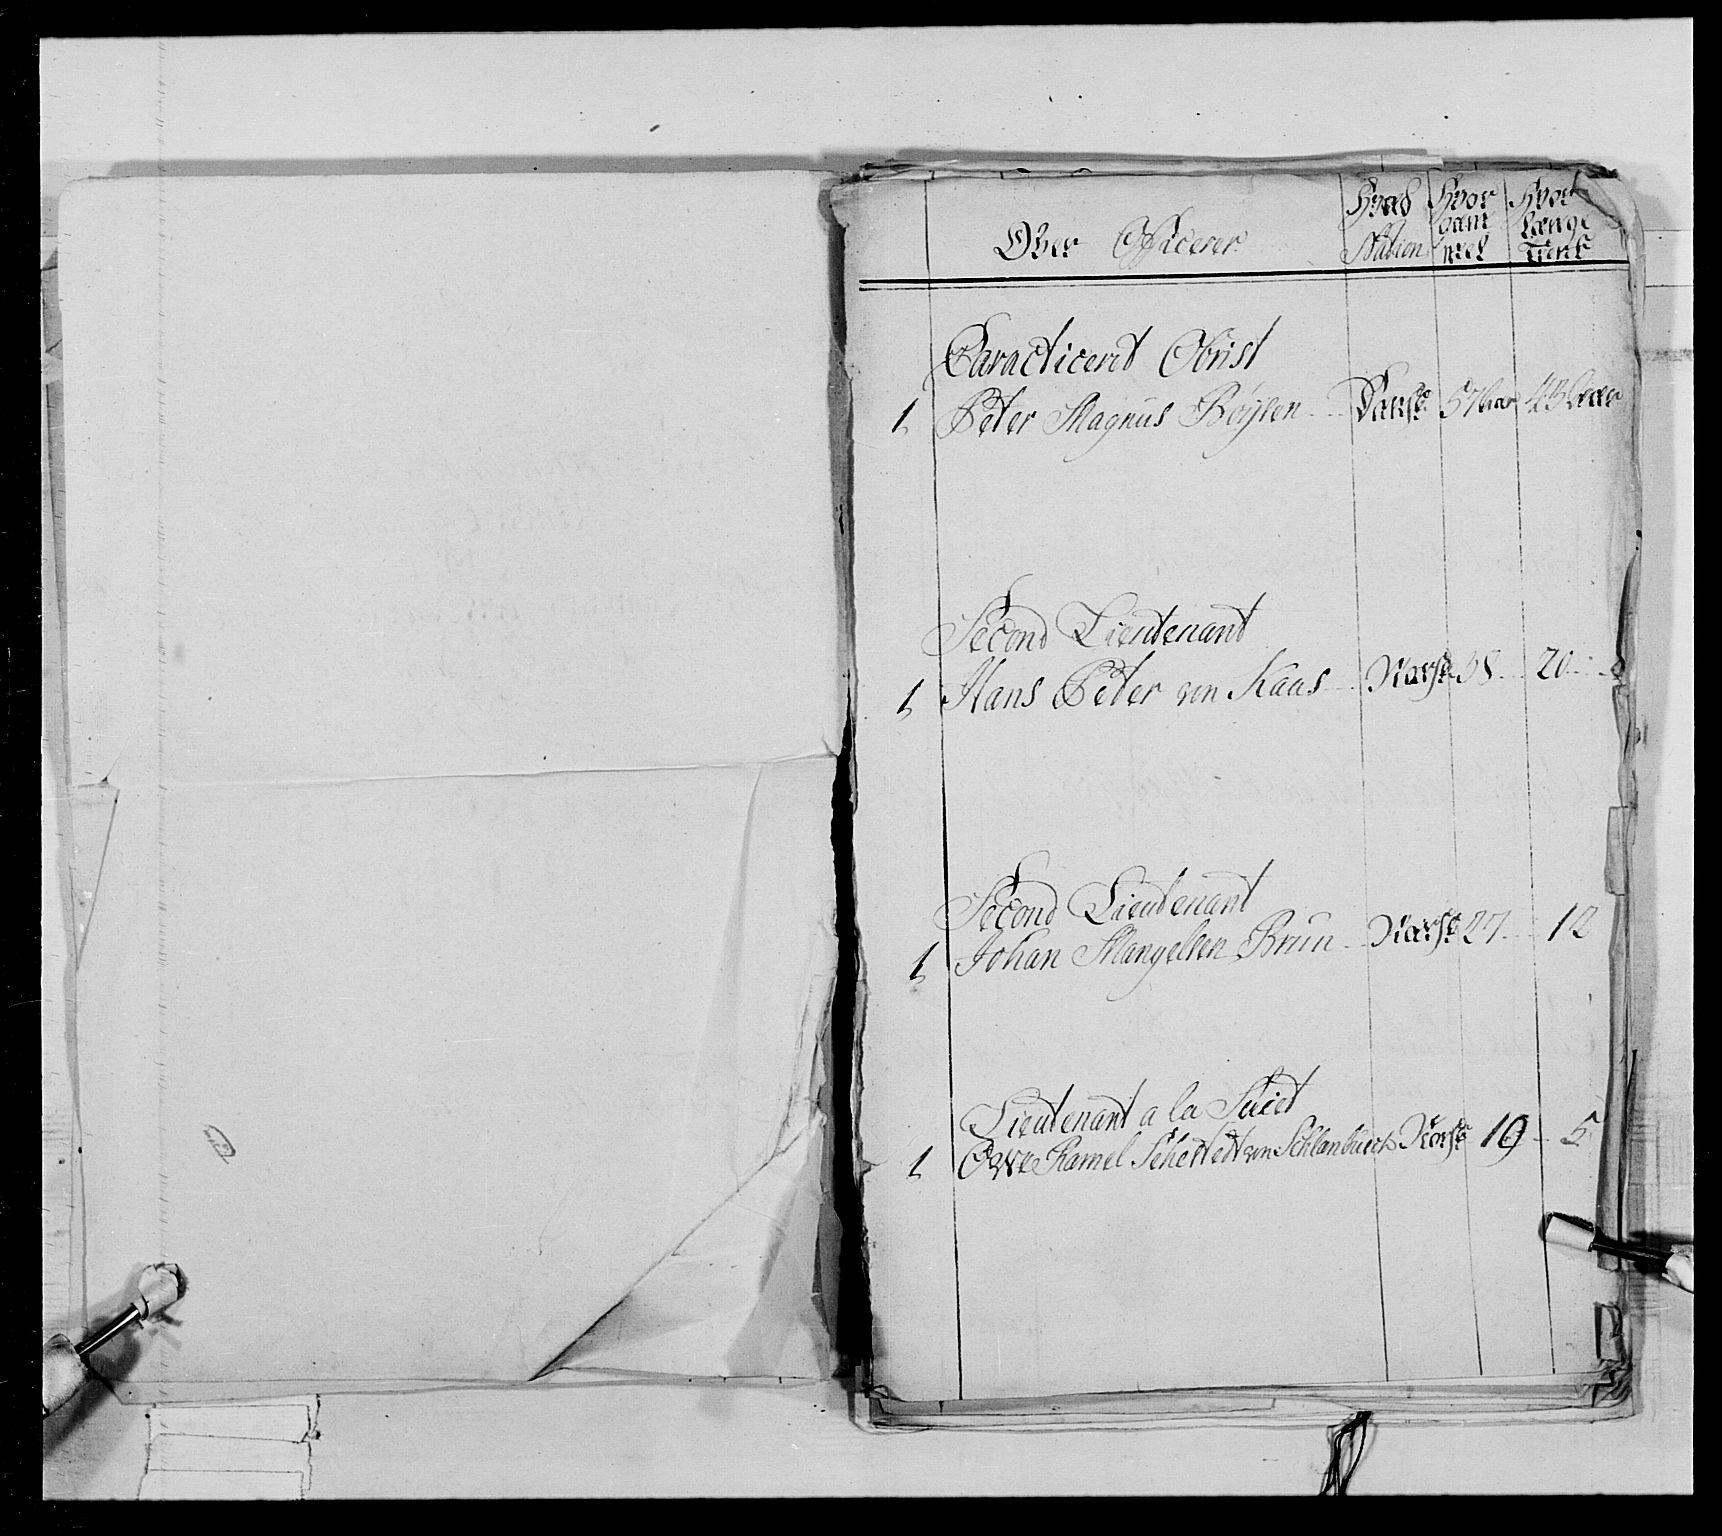 Over Officerer
Hvad Nation
Hvor Gam mel
Hvor Længe Tient
Caracticeret Obrist
1 Peter Magnus Böysen Dansk 57 Aar 43 Aar
Second Lieutenant
1 Hans Peter von Kaas Norsk 38 20
Second Lieutenant
1 Johan Mangelsen Brun Norsk 27 12
Lieutenant a la Suict
1 Owe Ramel Sehestedt von Schlanbusch Norsk 19 5